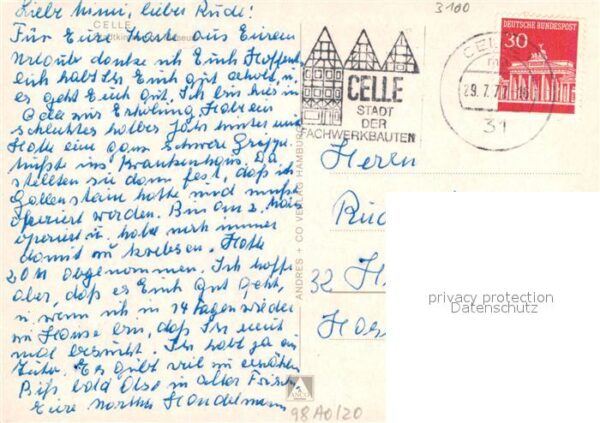 Liebe Mimi, lieber Rudi!
CELLE
Für Eure Karte aus Eurem
Urlaub danke ich Euch. Hoffent-
lich habt Ihr Euch gut erholt, u.
es geht Euch gut. Ich bin hier in
Celle zur Erholung. Habe ein
schlechtes halbes Jahr hinter mir
Hatte eine ganz schwere Grippe,
mußte ins Krankenhaus. Da
stellten sie dann fest, daß ich
Gallensteine hatte und mußte
operiert werden. Bin am 2. Mai
operiert u. habe noch immer
damit zu krebsen. Hatte
20 abgenommen. Ich hoffe
aber, daß es Euch gut geht,
u. wenn ich in 14 Tagen wieder
zu Hause bin, daß Ihr mich
mal besucht. Ihr habt ja ein
Auto. Es gibt viel zu erzählen
Bis bald Also in alter Frische
Eure Handelmann
ANDRES + CO VERLAG HAMBURG
3100
CELLE
STADT
DER
FACHWERKBAUTEN
DEUTSCHE BUNDESPOST
30
CELLE
29.7.
31
Herrn
32 H
privacy protection
Datenschutz
98A0/20